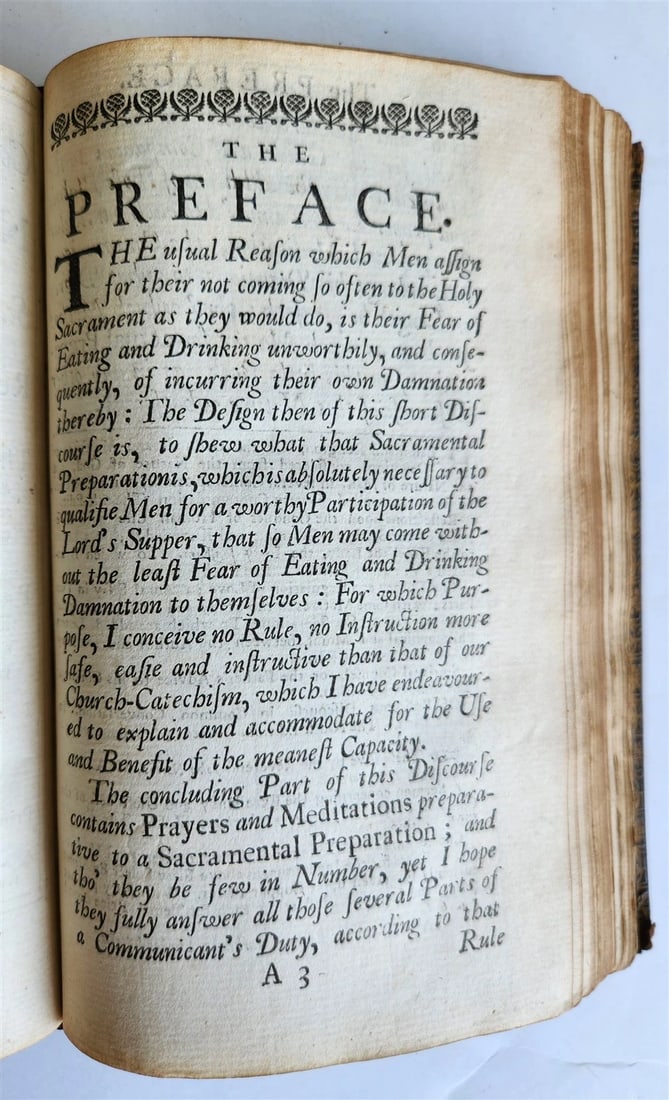 THE
PREFACE.
THE uſual Reaſon which Men aſſign
for their not coming ſo often to the Holy
Sacrament as they would do, is their Fear of
Eating and Drinking unworthily, and conſe-
quently, of incurring their own Damnation
thereby : The Deſign then of this ſhort Diſ-
courſe is, to ſhew what that Sacramental
Preparation is, which is abſolutely neceſſary to
qualifie Men for a worthy Participation of the
Lord's Supper, that ſo Men may come with-
out the leaſt Fear of Eating and Drinking
Damnation to themſelves : For which Pur-
poſe, I conceive no Rule, no Inſtruction more
ſafe, eaſie and inſtructive than that of our
Church-Catechiſm, which I have endeavour-
ed to explain and accommodate for the Uſe
and Benefit of the meaneſt Capacity.
The concluding Part of this Diſcourſe
contains Prayers and Meditations prepara-
tive to a Sacramental Preparation ; and
tho' they be few in Number, yet I hope
they fully anſwer all thoſe ſeveral Parts of
a Communicant's Duty, according to that
A 3 Rule